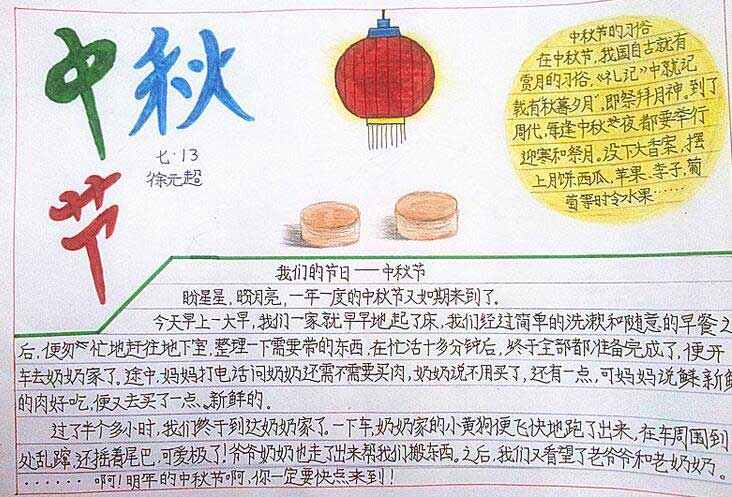 中秋
节
七·13
徐元超
中秋节的习俗
在中秋节,我国自古就有
赏月的习俗。《礼记》中就记
载有"秋暮夕月",即祭拜月神。到了
周代,每逢中秋夜都要举行
迎寒和祭月。设下大香案,摆
上月饼、西瓜、苹果、李子、葡
萄等时令水果……
我们的节日——中秋节
盼星星,盼月亮,一年一度的中秋节又如期来到了。
今天早上一大早,我们一家就早早地起了床,我们经过简单的洗漱和随意的早餐之
后,便匆匆忙地赶往地下室,整理一下需要带的东西,在忙活十多分钟后,终于全部都准备完成了,便开
车去奶奶家了。途中,妈妈打电话问奶奶还需不需要买肉,奶奶说不用买了,还有一点,可妈妈说鲜新鲜
的肉好吃,便又去买了一点。新鲜的。
过了半个多小时,我们终于到达奶奶家了。一下车,奶奶家的小黄狗便飞快地跑了出来,在车周围到
处乱蹿,还摇着尾巴,可爱极了!爷爷奶奶也走了出来帮我们搬东西。之后,我们又看望了老爷爷和老奶奶。
……啊!明年的中秋节啊,你一定要快点来到!